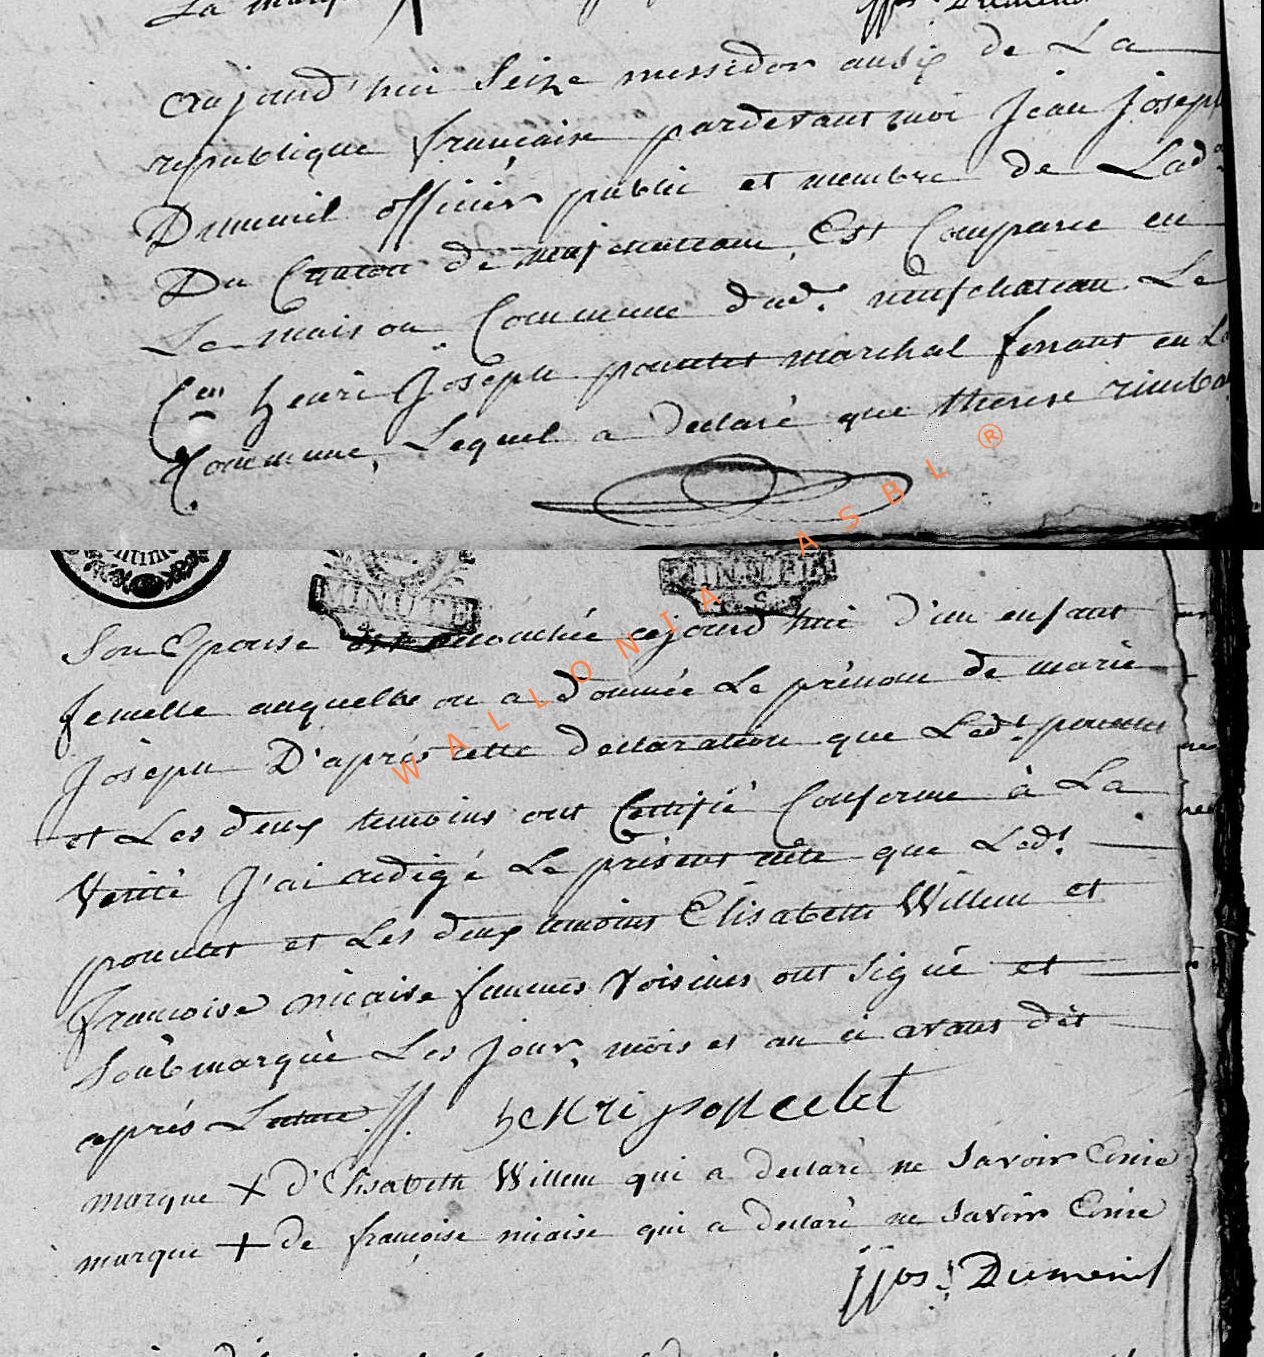 La marq
jjos. Dumenil
Aujourd'hui Seize messidor an six de La
republique française pardevant moi Jean Joseph
Dumenil officier public et membre de Lad.
Du Canton de neufchateau, Est Comparu en
La maison Commune dud. neufchateau Le
Cen henri Joseph poncelet marchal ferrant en La
Commune, Lequel a declaré que therese rimba
MINUTE
Son Epouse est accouchée cejourd'hui d'un enfant
femelle auquelle on a donnée Le prénom de marie
Joseph D'après cette declaration que Ledt poncelet
et Les deux temoins ont Certifié Conforme à La
Verité J'ai redigé Le présent acte que Ledt
poncelet et Les deux temoins Elisabeth Willem et
françoise nicaise femmes Voisines ont signé et
Soubmarqué Les jour, mois et an ci avant dit
après Lecture
henri poncelet
marque + d'Elisabeth Willem qui a declaré ne Savoir Ecrire
marque + de françoise nicaise qui a declaré ne Savoir Ecrire
jjos. Dumenil
WALLONIA ASBL ®